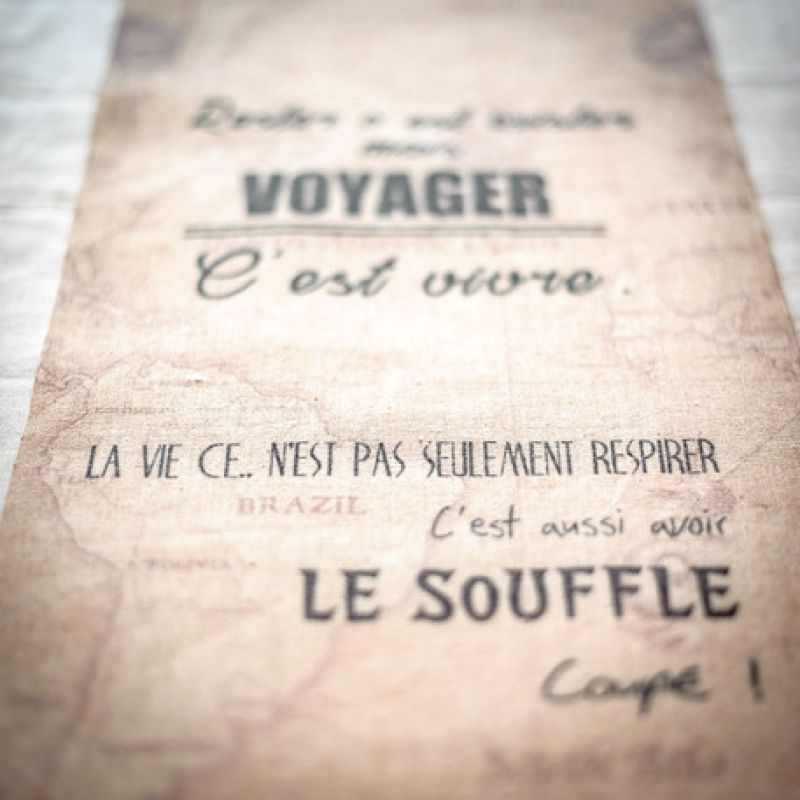 Rester c'est exister
mais
VOYAGER
C'est vivre.
LA VIE CE.. N'EST PAS SEULEMENT RESPIRER
BRAZIL
C'est aussi avoir
BOLIVIA
LE SOUFFLE
Coupé !